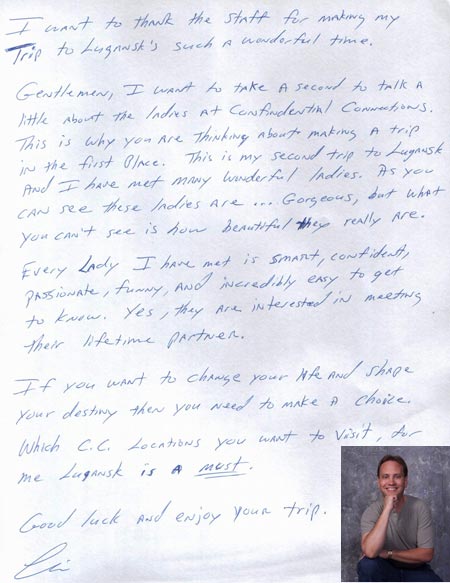 I want to thank the staff for making my
Trip to Lugansk's such a wonderful time.
Gentlemen, I want to take a second to talk a
little about the ladies at Confindential Connections.
This is why you are thinking about making a trip
in the first place. This is my second trip to Lugansk
and I have met many wonderful ladies. As you
can see these ladies are ... Gorgeous, but what
you can't see is how beautiful they really are.
Every Lady I have met is smart, confident,
passionate, funny, and incredibly easy to get
to know. Yes, they are interested in meeting
their lifetime partner.
If you want to change your life and shape
your destiny then you need to make a choice.
Which C.C. Locations you want to visit, for
me Lugansk is a must.
Good luck and enjoy your trip.